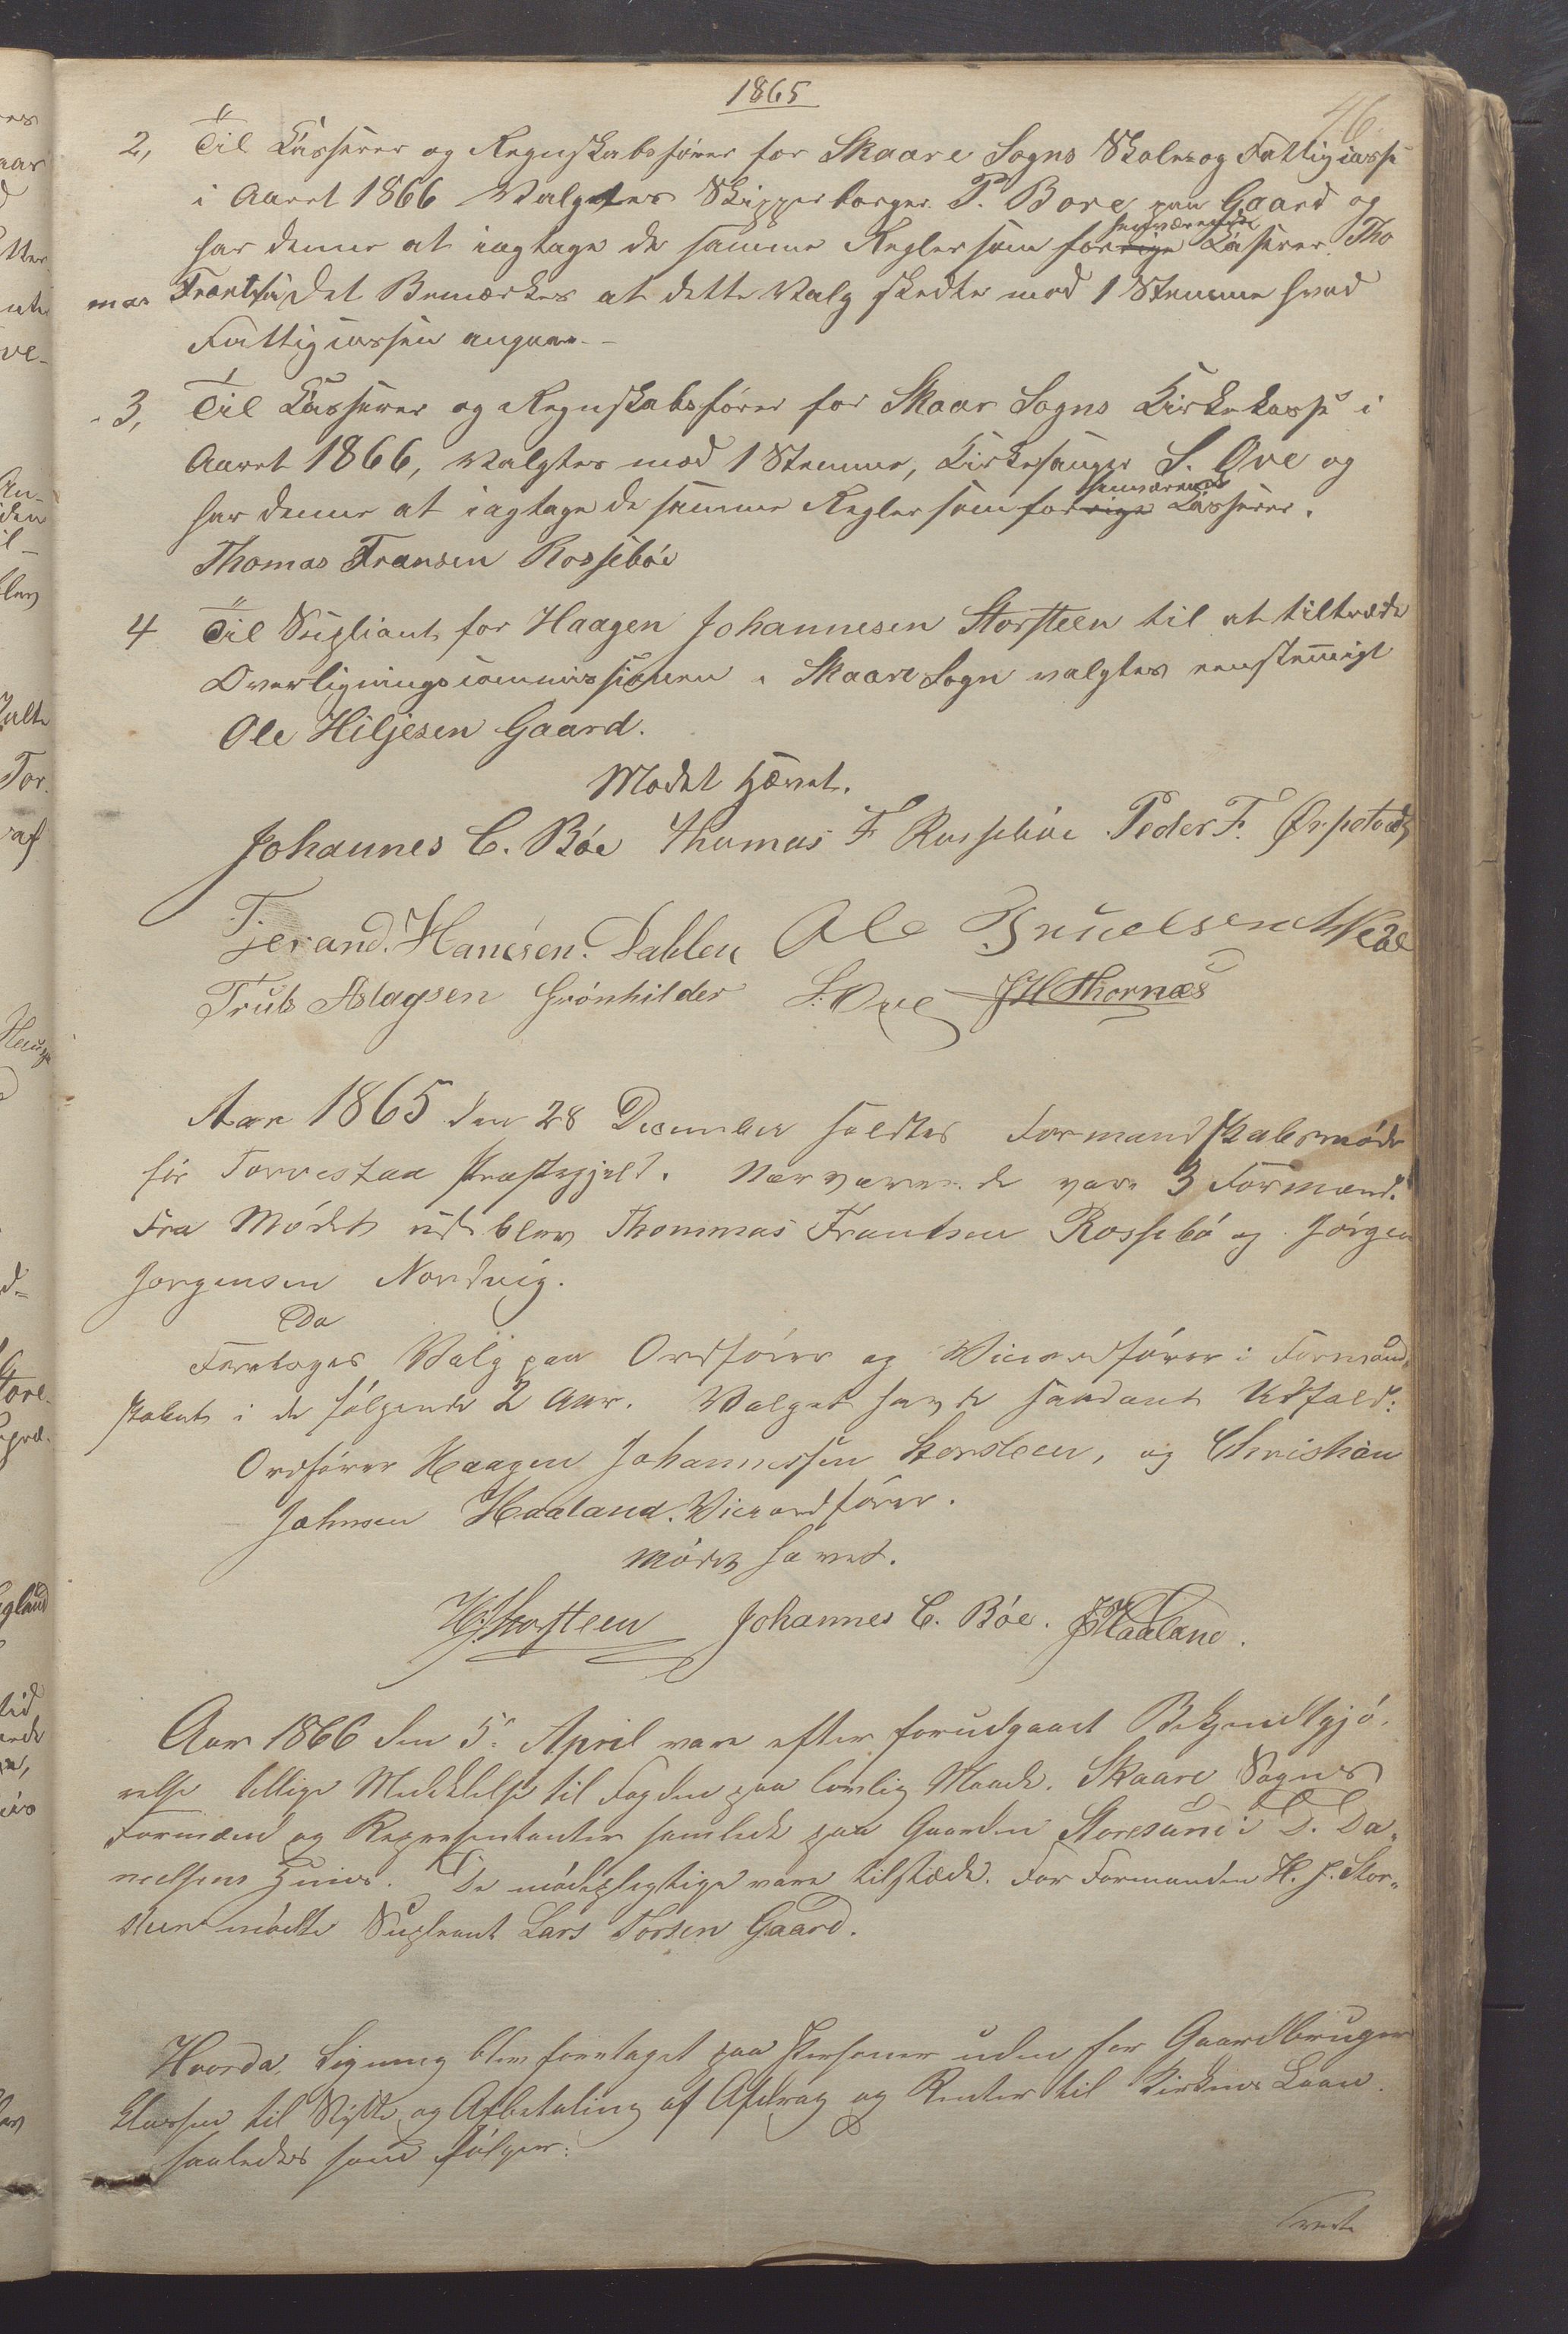 1865
46
2, Til Kasserer og Regnskabsfører for Skaare Sogns Skole og Fattigcasse
i Aaret 1866 Valgtes Skipperborger P. Bore paa Gaard og
har denne at iagtage de samme Regler som forrige nuværende Kaserer Tho
mas Frantsen det Bemærkes at dette Valg skedte med 1 Stemme hvad
Fattigcassen angaar. -
3, Til Kasserer og Regnskabsfører for Skaar Sogns Kirkekasse i
Aaret 1866, valgtes med 1 Stemme, Kirkesanger S. Ove og
har denne at iagtage de samme Regler som forrige nuværende Kasserer.
Thomas Fransen Rossebøe
4 Til Supliant for Haagen Johannesen Storsteen til at tiltræde
Overligningscommissionen i Skaare Sogn valgtes eenstemigt
Ole Hiljesen Gaard.
Mødet hævet.
Johannes C. Bøe Thomas F Rossebøe Peder F.
Tjerand. Hansen. Dahlen Ole
Truls Aslagsen Grønhilder S. Ove JH Thornæs
Aar 1865 den 28 December holdtes Formandskabsmøde
for Torvestad Præstegjeld. Nærværende vare 3 Formænd.
Fra Mødet udeblev Thommas Frantsen Rossebø og Jørgen
Jørgensen Nordvig.
Da
Foretoges Valg paa Ordfører og Viceordfører i Formand-
skabet i de følgende 2 Aar. Valget havde saadant Udfald:
Ordfører Haagen Johannessen Storsteen, og Christian
Johnsen Haaland. Viceordfører.
Mødet hævet.
H.J. Storsteen Johannes C. Bøe. Haaland.
Aar 1866 den 5. April vare efter forudgaaet Bekjendtgjø-
relse tillige Meddelelse til Fogden paa lovlig Maade. Skaare Sogns
Formænd og Repræsentanter samlede paa Gaarden Storesund i D. Da-
nielsens Huus. De mødepligtige vare tilstæde. For Formanden H. J. Stor-
steen mødte Supleant Lars Torsen Gaard.
Hvorda Ligning blev foretaget paa Personer uden for Gaardbruger
Klassen til Skifte og Afbetaling af Afdrag og Renter til Kirkens Laan
saaledes som følger: